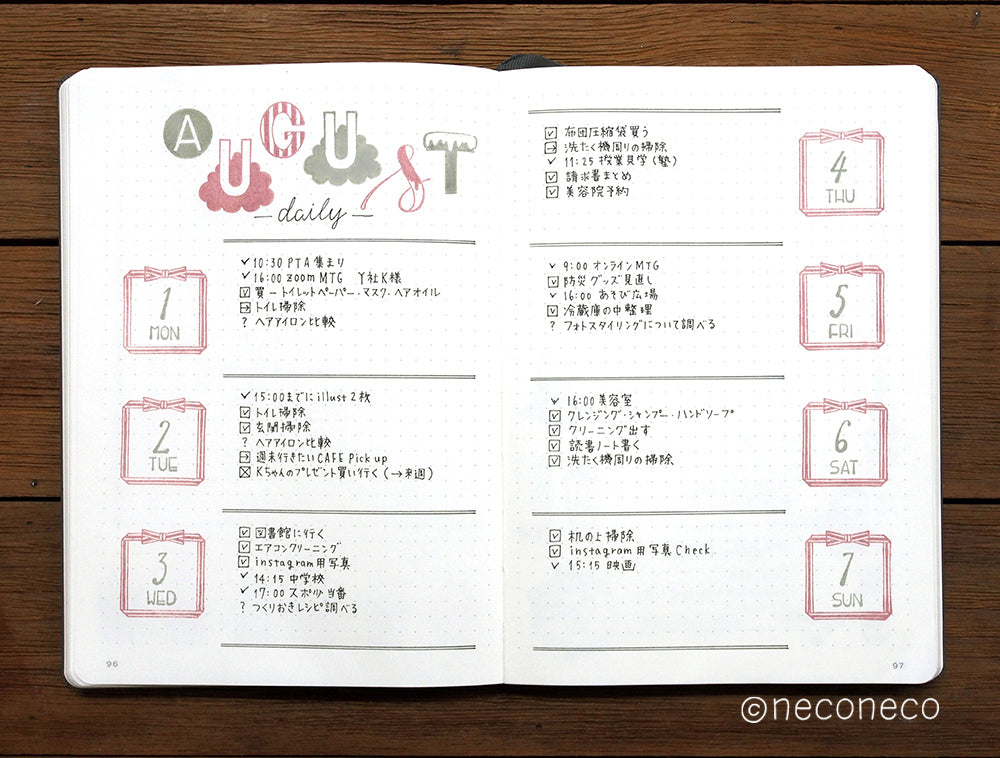 AUGUST
-daily-
1
MON
✓10:30 PTA 集まり
✓16:00 zoom MTG Y社K様
☑買ートイレットペーパー・マスク・ヘアオイル
トイレ掃除
? ヘアアイロン比較
2
TUE
✓15:00までにillust2枚
☑トイレ掃除
☑玄関掃除
? ヘアアイロン比較
週末行きたいCAFE Pick up
☒Kちゃんのプレゼント買い行く(→来週)
3
WED
☑図書館に行く
☑エアコンクリーニング
☑instagram用写真
✓14:15 中学校
✓17:00 スポ少当番
? つくりおきレシピ調べる
96
☑布団圧縮袋買う
洗たく機周りの掃除
✓11:25 授業見学(塾)
☑請求書まとめ
☑美容院予約
4
THU
✓9:00 オンラインMTG
☑防災グッズ見直し
✓16:00 あそび広場
☑冷蔵庫の中整理
? フォトスタイリングについて調べる
5
FRI
✓16:00美容室
☑クレンジング・シャンプー・ハンドソープ
☑クリーニング出す
☑読書ノート書く
☑洗たく機周りの掃除
6
SAT
☑机の上掃除
☑instagram用写真Check
✓15:15 映画
7
SUN
97
©neconeco